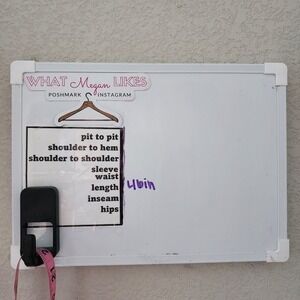 WHAT Megan LIKES
POSHMARK INSTAGRAM
pit to pit
shoulder to hem
shoulder to shoulder
sleeve
waist
length 46in
inseam
hips